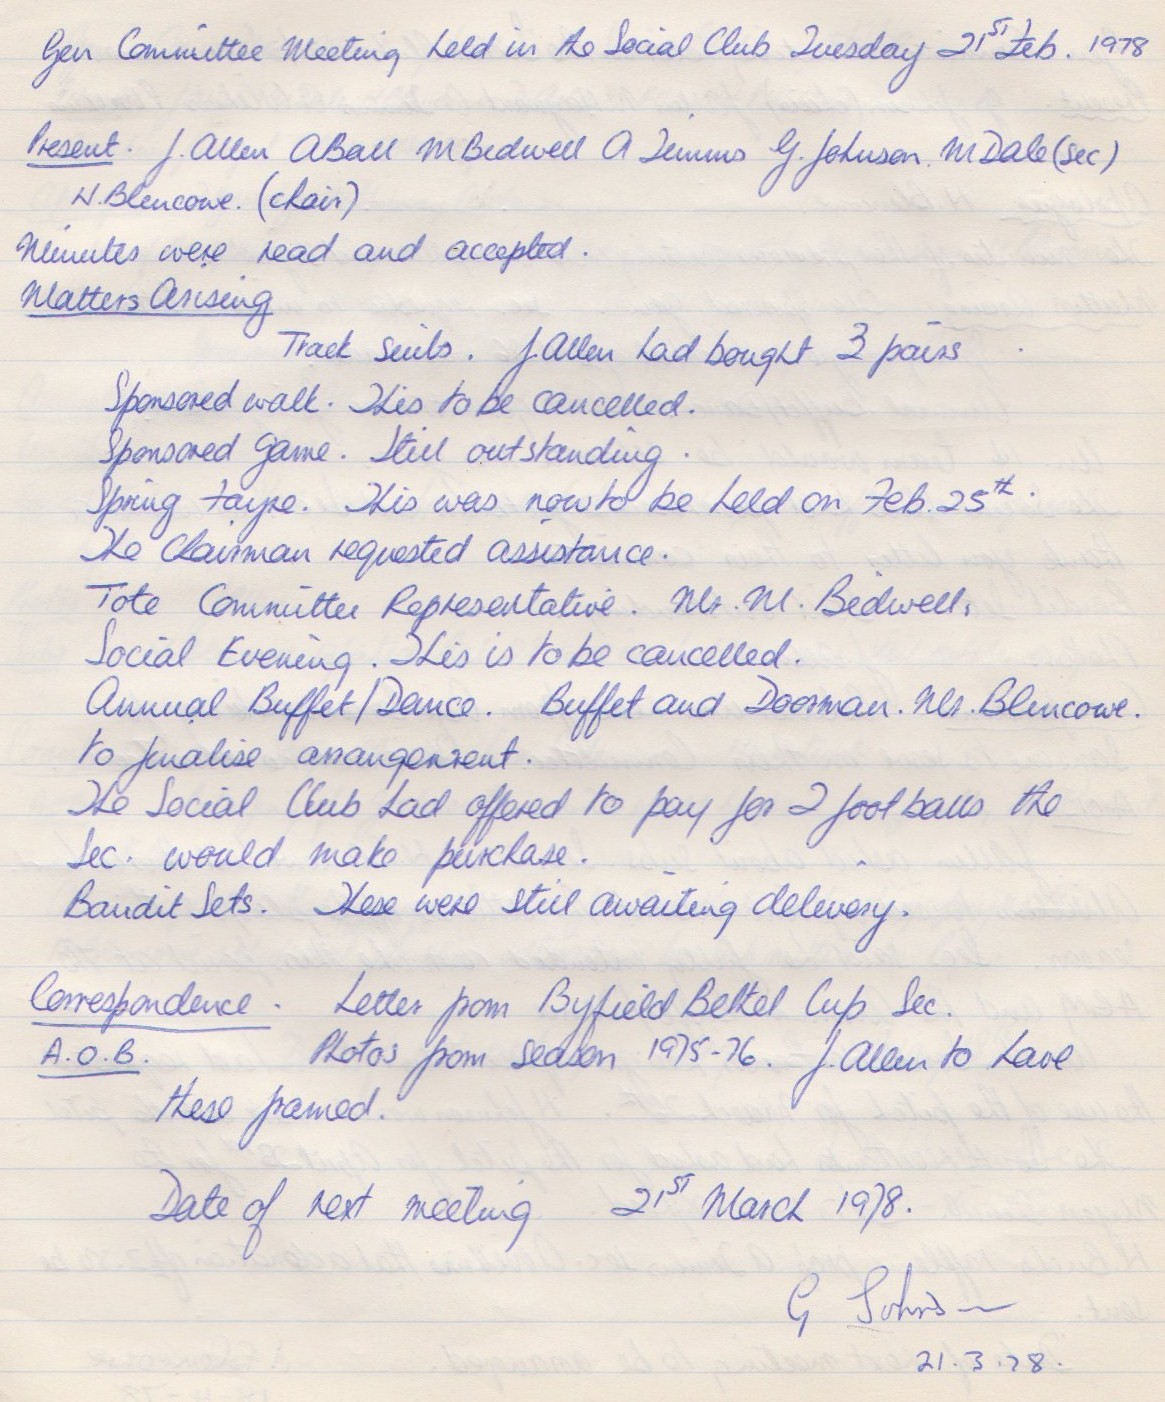 Gen Committee Meeting held in the Social Club Tuesday 21ST Feb. 1978
Present. J. Allen A Ball M Bedwell A Timms G. Johnson. M Dale (sec)
N. Blencowe. (chair)
Minutes were read and accepted.
Matters Arising
Track suits. J. Allen had bought 3 pairs
Sponsored walk. This to be cancelled.
Sponsored Game. Still outstanding.
Spring Fayre. This was now to be held on Feb. 25th.
The Chairman requested assistance.
Tote Committee Representative. Mr. M. Bedwell.
Social Evening. This is to be cancelled.
Annual Buffet/Dance. Buffet and Doorman. Mr. Blencowe.
to finalise arrangement.
The Social Club had offered to pay for 2 footballs the
Sec. would make purchase.
Bandit Sets. These were still awaiting delivery.
Correspondence. Letter from Byfield Bethel Cup Sec.
A.O.B. Photos from season 1975-76. J. Allen to have
these framed.
Date of next meeting 21ST March 1978.
G Johnson
21.3.78.